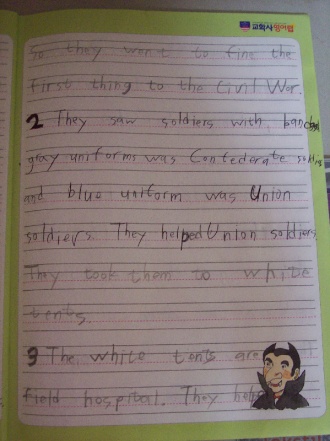 교회사영어랩
So they went to fine the
first thing to the Civil War.
2 They saw soldiers with
gray uniforms was Confederate
and blue uniform was Union
soldiers. They helped Union soldiers.
They took them to white
tents.
3 The white tents are
field hospital. They